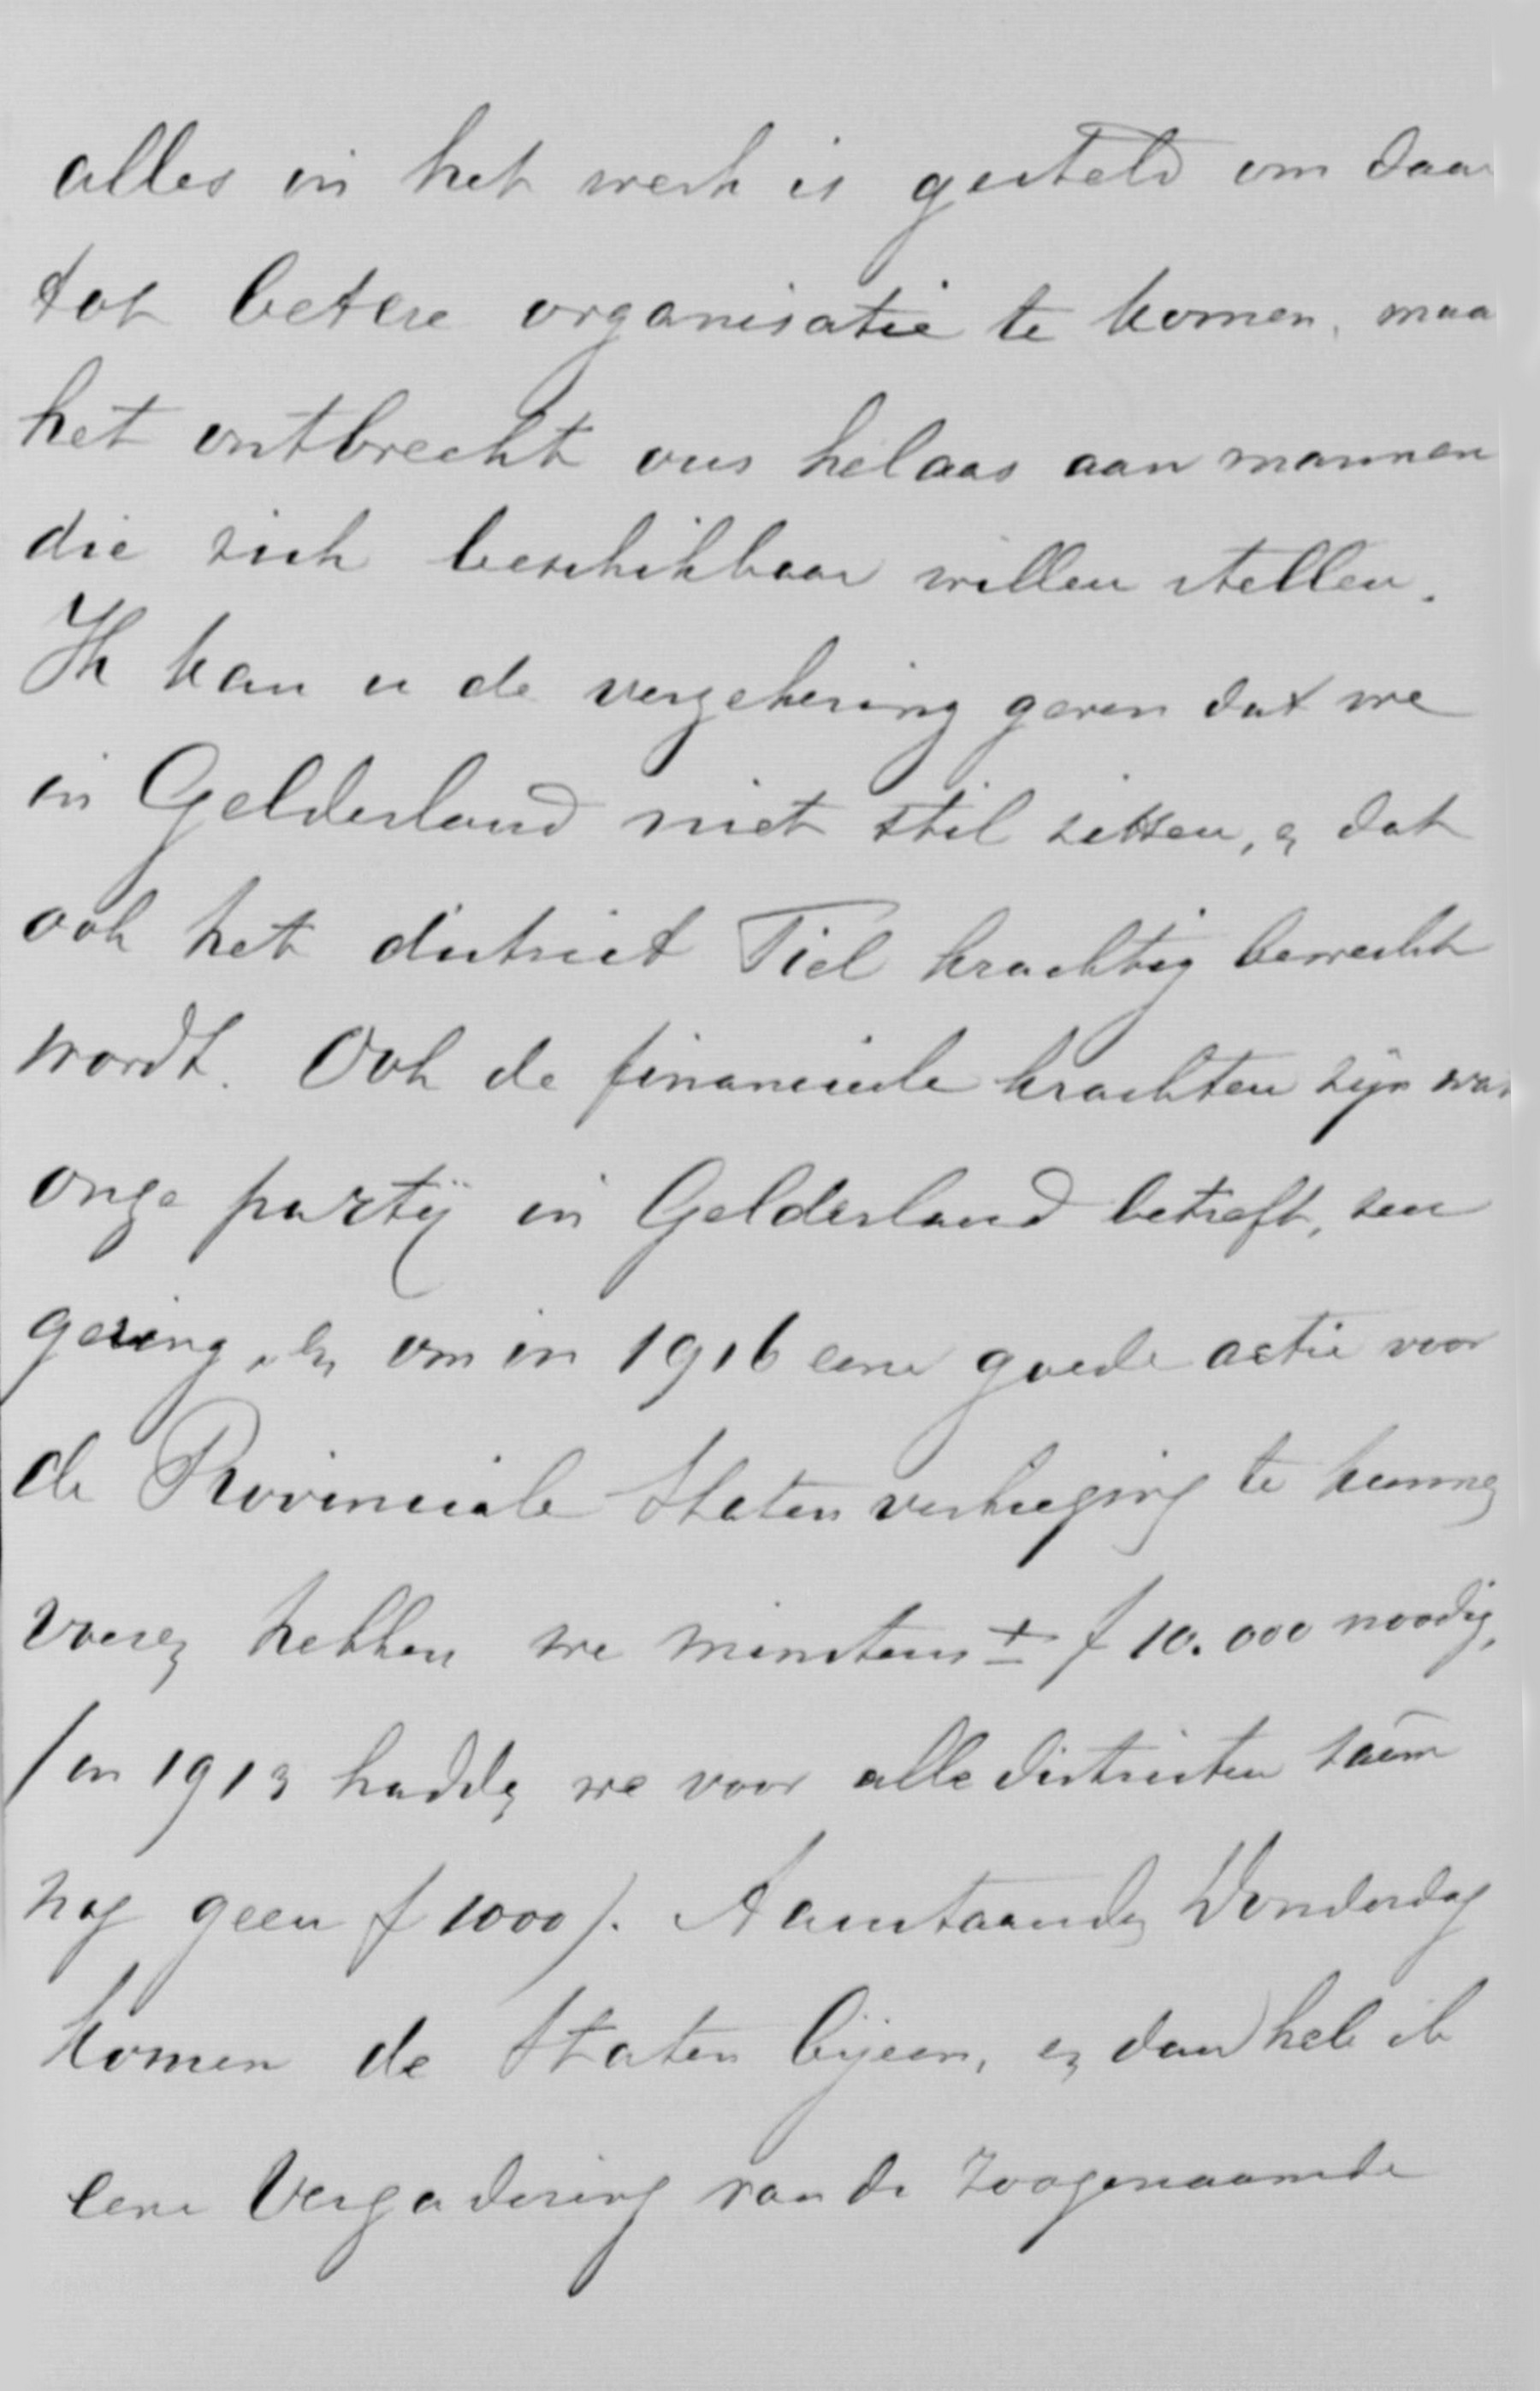 alles in het werk is gesteld om daar
tot betere organisatie te komen, maa
het ontbreekt ons helaas aan mannen
die zich beschikbaar willen stellen.
Ik kan u de verzekering geven dat we
in Gelderland niet stil zitten, en dat
ook het district Tiel krachtig bewerkt
wordt. Ook de financieele krachten zijn wat
onze partij in Gelderland betreft, zeer
gering, en om in 1916 eene goede actie voor
de Provinciale Staten verkiezing te kunnen
voeren hebben we minstens ± f 10.000 noodig,
/en 1913 hadden we voor alle districten saâm
nog geen f 1000/. Aanstaanden Donderdag
komen de Staten bijeen, en dan heb ik
eene Vergadering van de zoogenaamde